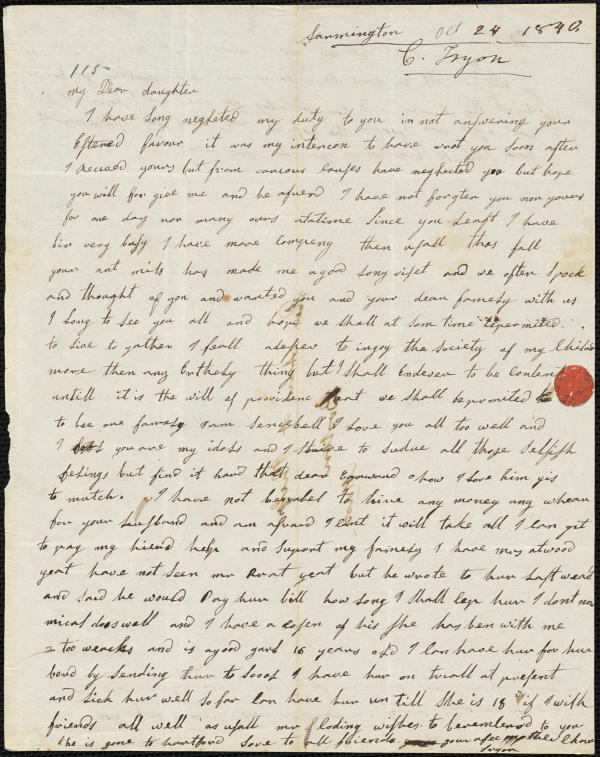 Farmington Oct 24 1840.
C. Tryon
115
My Dear daughter
I have long neglited my duty to you in not answering your
Esteemed favour it was my intencon to have wrot you soon after
I received yours but from various causes have neglected you but hope
you will for give me and be asured I have not forgten you nor yours
for one day nor many ours atatime since you Leaft I have
bin very busy I have more company then usall this fall
your ant mils has made me agood long viset and we often Spock
and thought of you and wanted you and your dear famely with us
I long to see you all and hope we shall at som time bepermited
to live to gather I feall adesier to injoy the society of my Children
more then any Erthely thing but I shall Endever to be content
untill it is the will of providence that we shall bepermited to
to bee one famely I am sencebell I Love you all too well and
I you are my idols and I strive to sudue all those selfish
feelings but find it hard that dear Edward o how I Love him yis
to mutch. I have not benabel to hire any money any whear
for your husband and am afraid I cant it will take all I can git
to pay my hierd help and Suport my famely I have mrs atwood
yeat have not seen mr yeat but he wrote to hur Last weak
and said he would Pay hur bill how long I shall cep hur I dont now
doswell and I have a cosen of his She has ben with me
2 too weacks and is agood garl 16 years old I can have hur for hur
bord by sending hur to scool I have hur on triall at present
and Lick hur well so far can have hur un till she is 18 if I wish
friends all well as usall mr wishes to beremberd to you
She is gone to hartford Love to all friends your afec mother Chou
Tryon